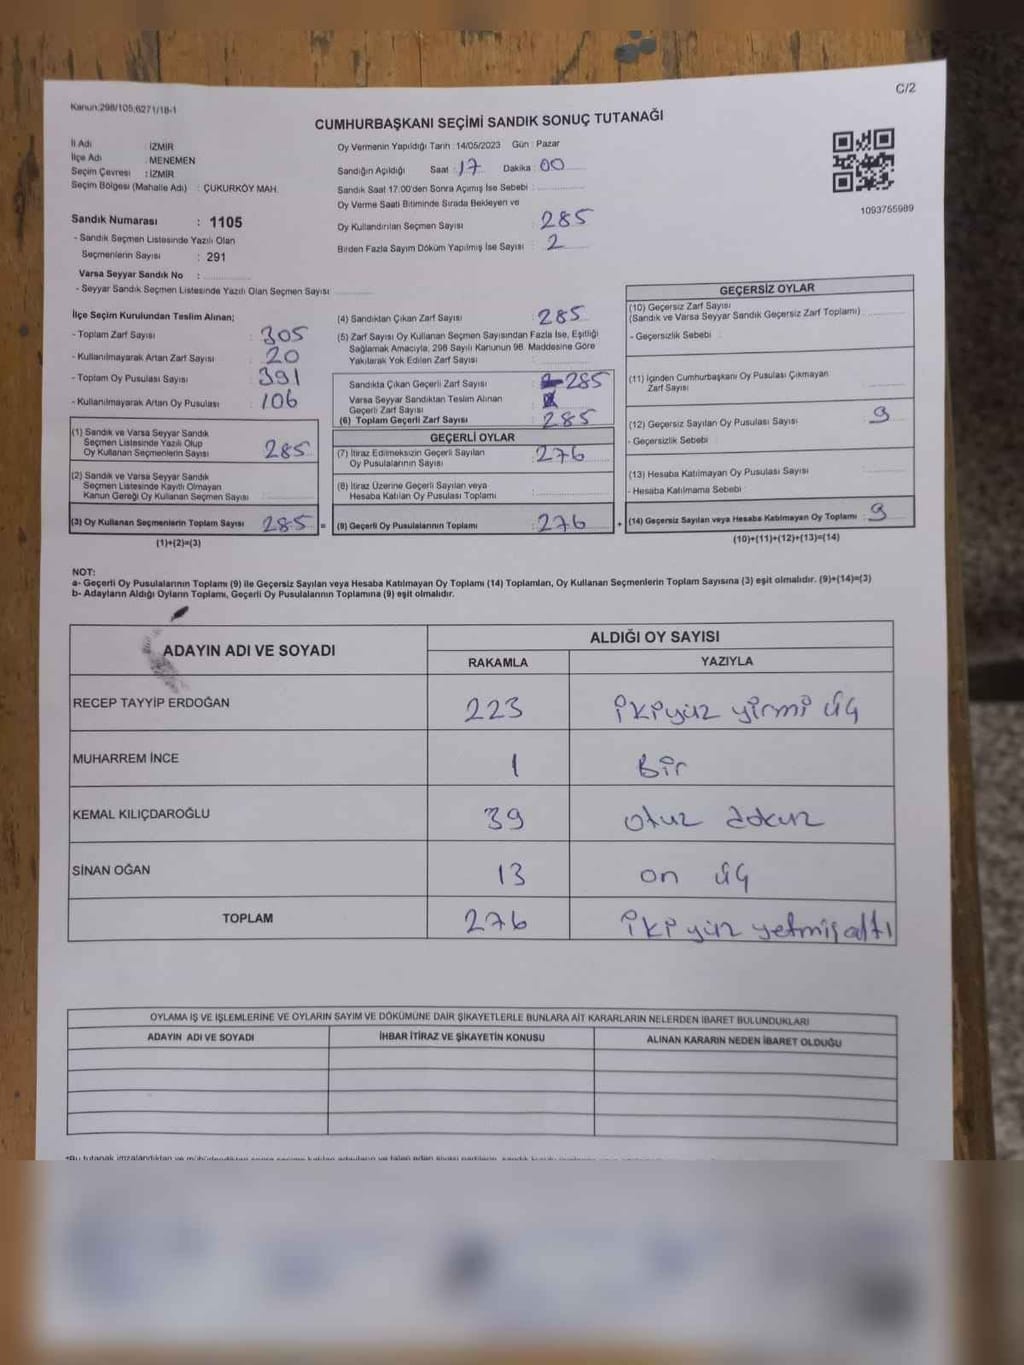 Kanun:298/105;6271/18-1
C/2
CUMHURBAŞKANI SEÇİMİ SANDIK SONUÇ TUTANAĞI
İl Adı : İZMİR
İlçe Adı : MENEMEN
Seçim Çevresi : İZMİR
Seçim Bölgesi (Mahalle Adı) : ÇUKURKÖY MAH.
Sandık Numarası : 1105
- Sandık Seçmen Listesinde Yazılı Olan
Seçmenlerin Sayısı : 291
Varsa Seyyar Sandık No :
- Seyyar Sandık Seçmen Listesinde Yazılı Olan Seçmen Sayısı
Oy Vermenin Yapıldığı Tarih :14/05/2023 Gün : Pazar
Sandığın Açıldığı Saat : 17 Dakika : 00
Sandık Saat 17.00'den Sonra Açımış İse Sebebi :
Oy Verme Saati Bitiminde Sırada Bekleyen ve
Oy Kullandırılan Seçmen Sayısı : 285
Birden Fazla Sayım Döküm Yapılmış İse Sayısı : 2
1093755989
İlçe Seçim Kurulundan Teslim Alınan;
- Toplam Zarf Sayısı : 305
- Kullanılmayarak Artan Zarf Sayısı : 20
- Toplam Oy Pusulası Sayısı : 391
- Kullanılmayarak Artan Oy Pusulası : 106
(1) Sandık ve Varsa Seyyar Sandık
Seçmen Listesinde Yazılı Olup
Oy Kullanan Seçmenlerin Sayısı : 285
(2) Sandık ve Varsa Seyyar Sandık
Seçmen Listesinde Kayıtlı Olmayan
Kanun Gereği Oy Kullanan Seçmen Sayısı
(3) Oy Kullanan Seçmenlerin Toplam Sayısı : 285 =
(1)+(2)=(3)
(4) Sandıktan Çıkan Zarf Sayısı : 285
(5) Zarf Sayısı Oy Kullanan Seçmen Sayısından Fazla İse, Eşitliği
Sağlamak Amacıyla, 298 Sayılı Kanunun 98. Maddesine Göre
Yakılarak Yok Edilen Zarf Sayısı
Sandıkta Çıkan Geçerli Zarf Sayısı : 285
Varsa Seyyar Sandıktan Teslim Alınan
Geçerli Zarf Sayısı
(6) Toplam Geçerli Zarf Sayısı : 285
GEÇERLİ OYLAR
(7) İtiraz Edilmeksizin Geçerli Sayılan
Oy Pusulalarının Sayısı : 276
(8) İtiraz Üzerine Geçerli Sayılan veya
Hesaba Katılan Oy Pusulası Toplamı
(9) Geçerli Oy Pusulalarının Toplamı : 276 +
GEÇERSİZ OYLAR
(10) Geçersiz Zarf Sayısı
(Sandık ve Varsa Seyyar Sandık Geçersiz Zarf Toplamı)
- Geçersizlik Sebebi :
(11) İçinden Cumhurbaşkanı Oy Pusulası Çıkmayan
Zarf Sayısı
(12) Geçersiz Sayılan Oy Pusulası Sayısı : 9
- Geçersizlik Sebebi
(13) Hesaba Katılmayan Oy Pusulası Sayısı
- Hesaba Katılmama Sebebi
(14) Geçersiz Sayılan veya Hesaba Katılmayan Oy Toplamı : 9
(10)+(11)+(12)+(13)=(14)
NOT:
a- Geçerli Oy Pusulalarının Toplamı (9) ile Geçersiz Sayılan veya Hesaba Katılmayan Oy Toplamı (14) Toplamları, Oy Kullanan Seçmenlerin Toplam Sayısına (3) eşit olmalıdır. (9)+(14)=(3)
b- Adayların Aldığı Oyların Toplamı, Geçerli Oy Pusulalarının Toplamına (9) eşit olmalıdır.
ADAYIN ADI VE SOYADI ALDIĞI OY SAYISI
RAKAMLA YAZIYLA
RECEP TAYYİP ERDOĞAN 223 ikiyüz yirmi üç
MUHARREM İNCE 1 Bir
KEMAL KILIÇDAROĞLU 39 otuz dokuz
SİNAN OĞAN 13 on üç
TOPLAM 276 ikiyüz yetmiş altı
OYLAMA İŞ VE İŞLEMLERİNE VE OYLARIN SAYIM VE DÖKÜMÜNE DAİR ŞİKAYETLERLE BUNLARA AİT KARARLARIN NELERDEN İBARET BULUNDUKLARI
ADAYIN ADI VE SOYADI İHBAR İTİRAZ VE ŞİKAYETİN KONUSU ALINAN KARARIN NEDEN İBARET OLDUĞU